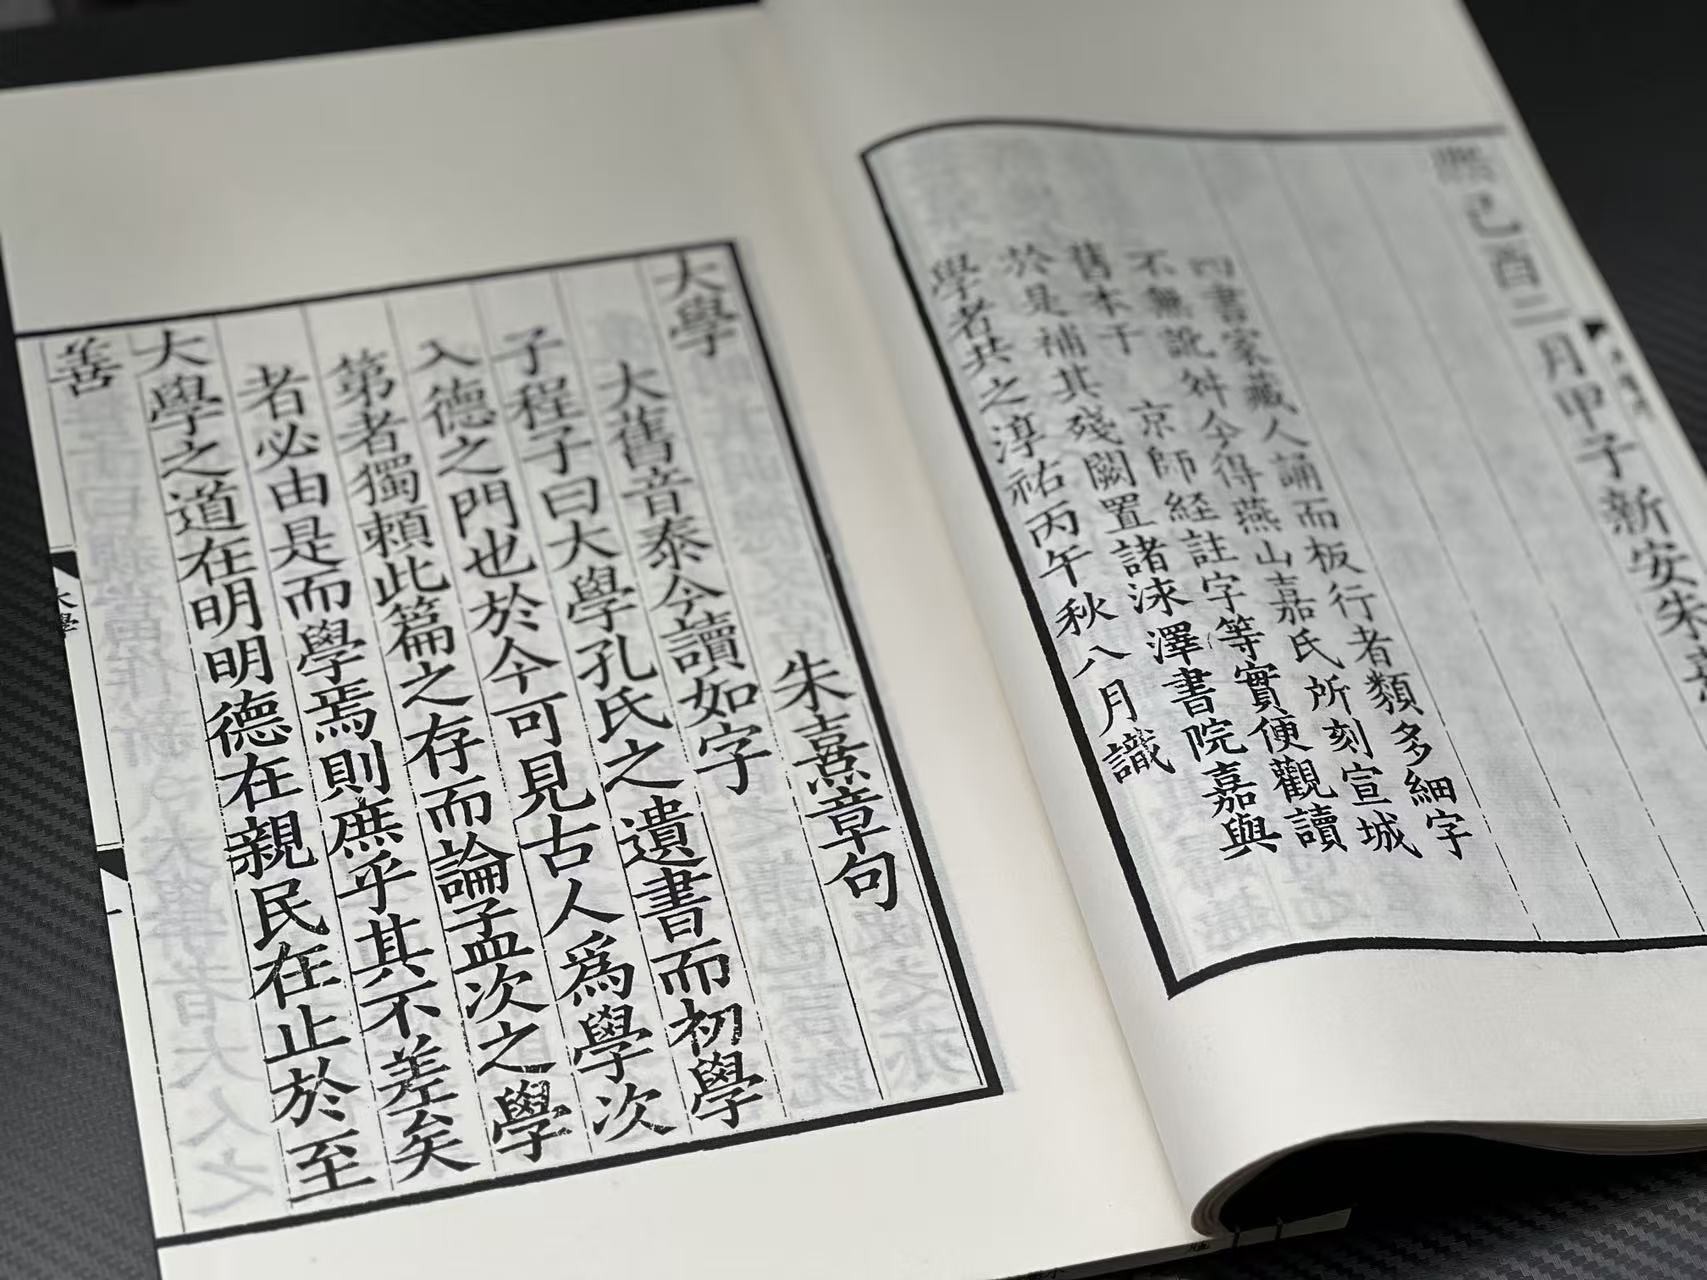 熙己酉二月甲子新安朱熹
四書家藏人誦而板行者類多細字
不無訛舛今得燕山嘉氏所刻宣城
舊本于　京師経註字等實便觀讀
於是補其殘闕置諸洙澤書院嘉與
學者共之淳祐丙午秋八月識
大學
朱熹章句
大舊音泰今讀如字
子程子曰大學孔氏之遺書而初學
入德之門也於今可見古人爲學次
第者獨賴此篇之存而論孟次之學
者必由是而學焉則庶乎其不差矣
大學之道在明明德在親民在止於至
善
大學